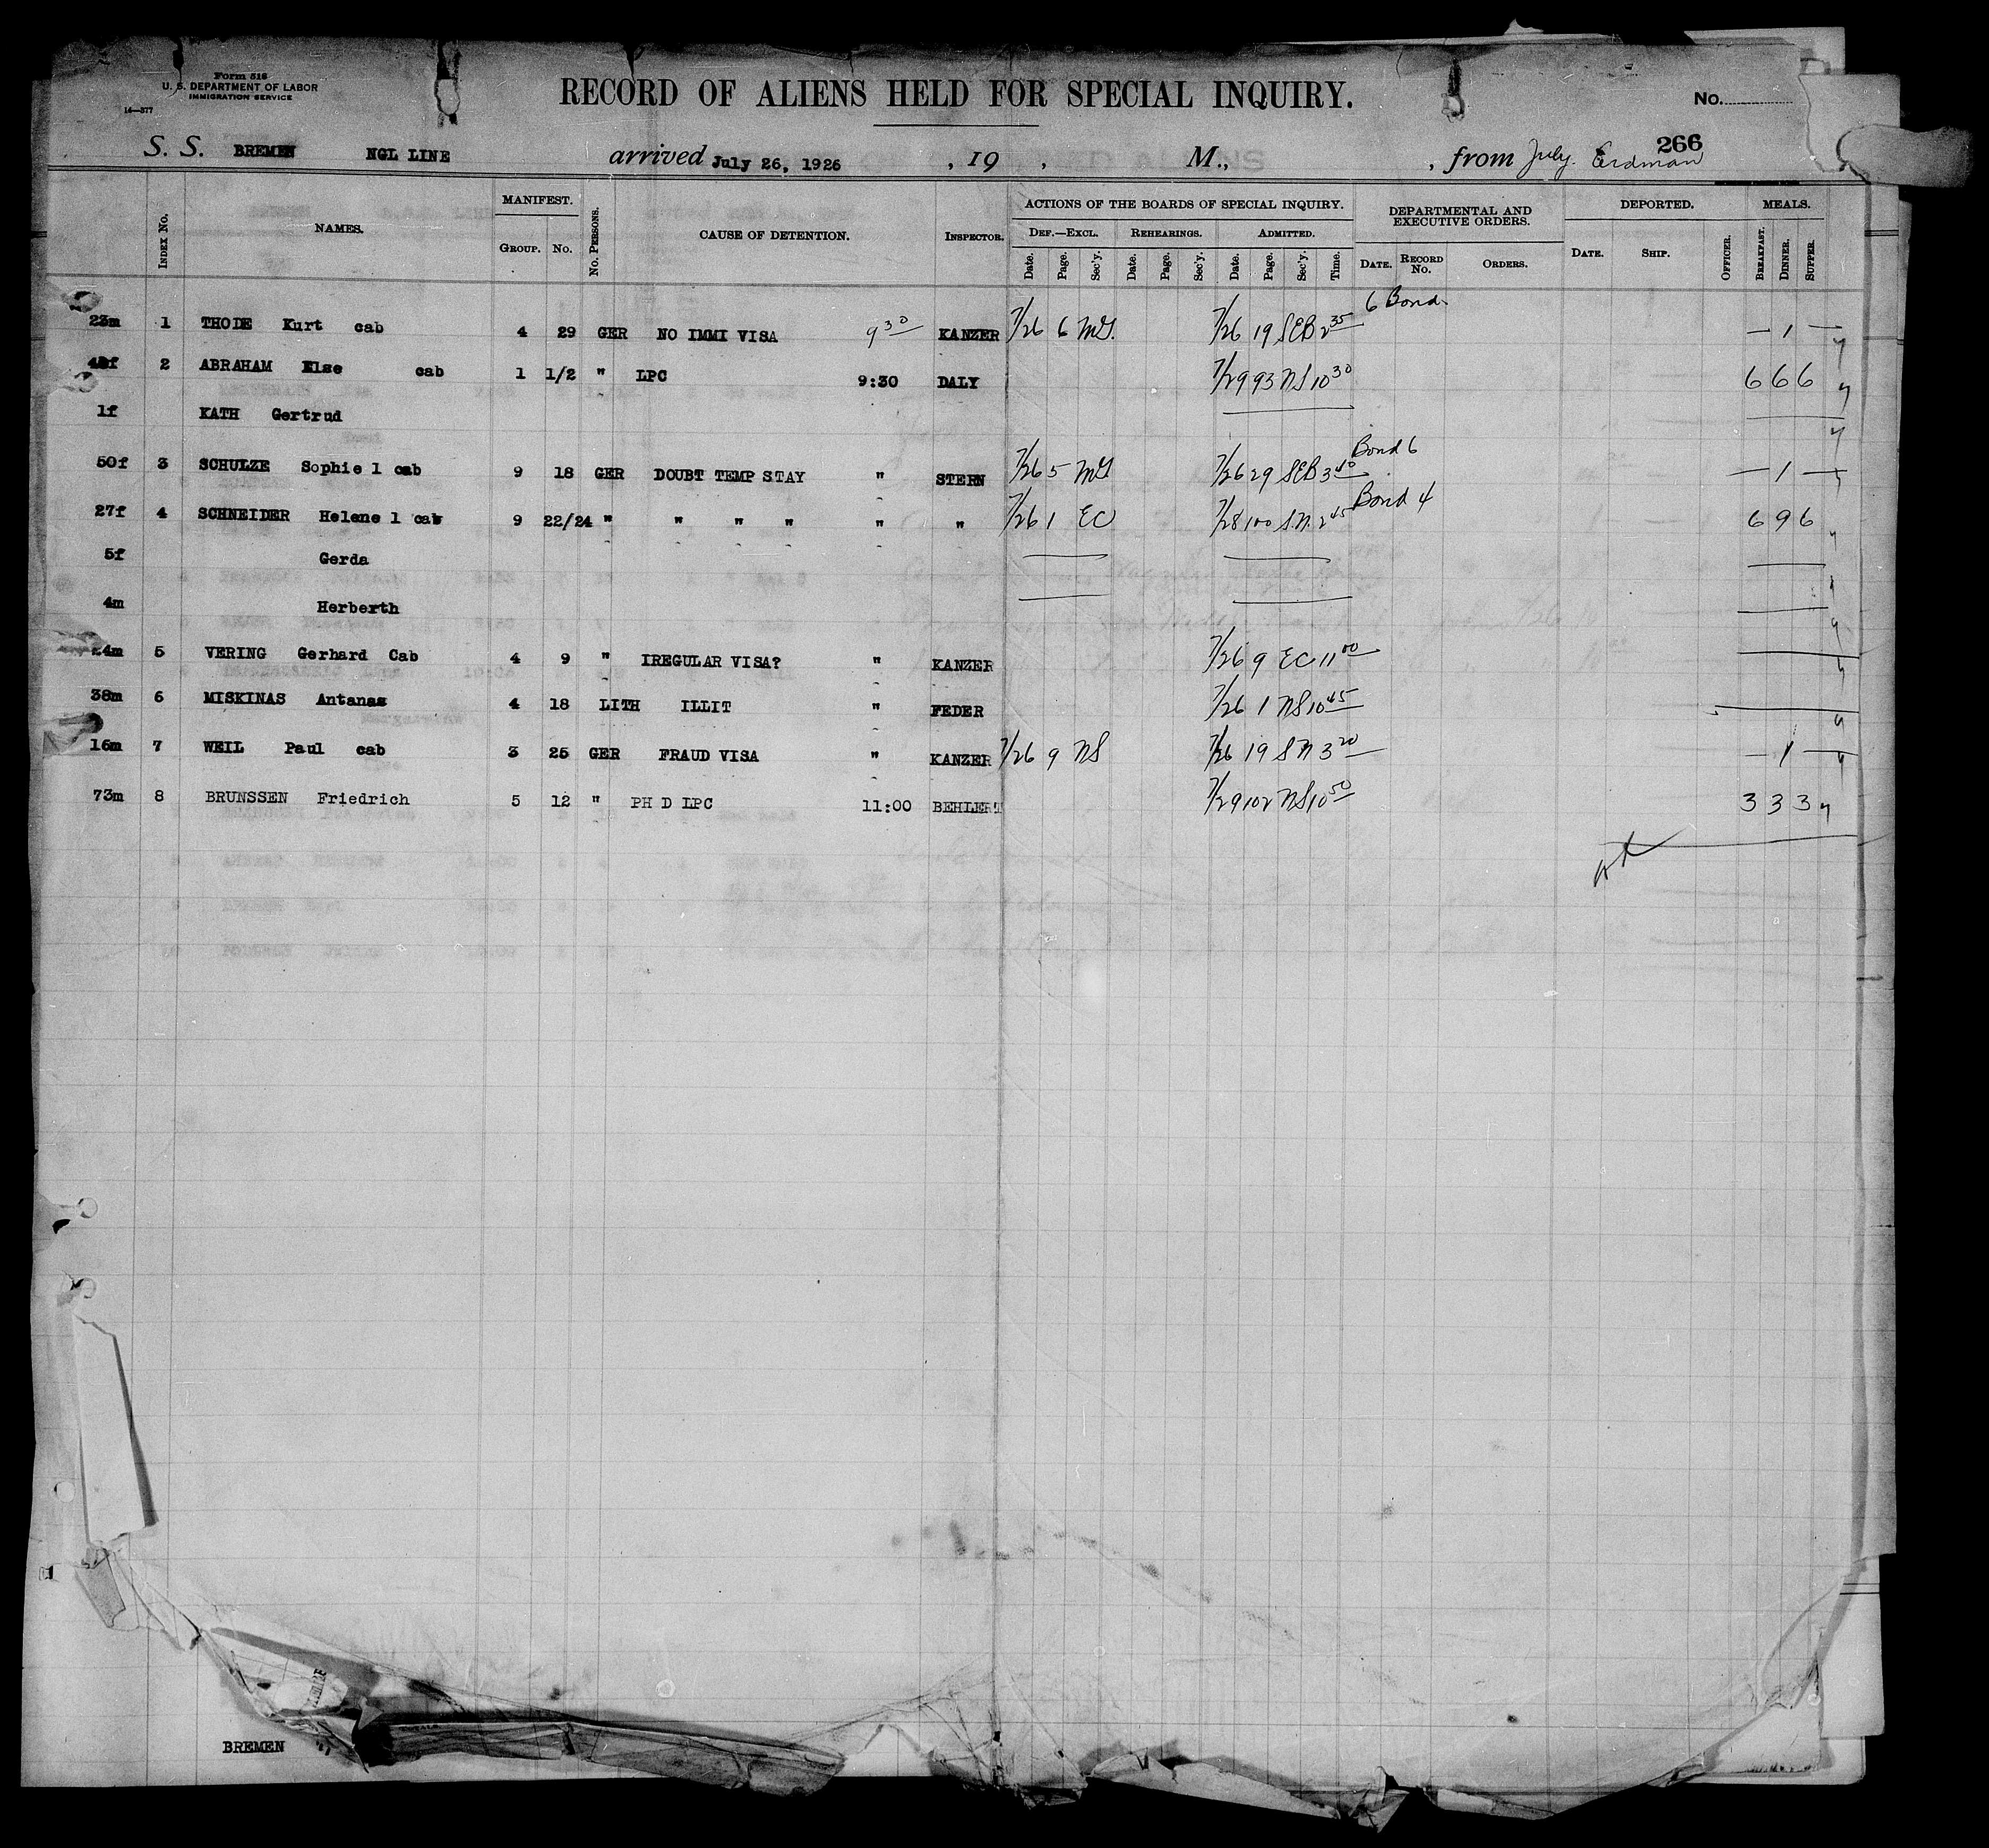 Form 516
U. S. DEPARTMENT OF LABOR
IMMIGRATION SERVICE
14—377
RECORD OF ALIENS HELD FOR SPECIAL INQUIRY.
No.
266
S. S. BREMEN NGL LINE arrived July 26, 1926 , 19 , M., , from July. Erdman
Index No. NAMES. MANIFEST. Group. No. No. Persons. CAUSE OF DETENTION. Inspector. ACTIONS OF THE BOARDS OF SPECIAL INQUIRY. DEPARTMENTAL AND EXECUTIVE ORDERS. DEPORTED. MEALS.
Def.—Excl. Rehearings. Admitted.
Date. Page. Sec'y. Date. Page. Sec'y. Date. Page. Sec'y. Time. Date. Record No. Orders. Date. Ship. Officer. Breakfast. Dinner. Supper.
6 Bond
23m 1 THODE Kurt cab 4 29 GER NO IMMI VISA 9 30 KANZER 7/26 6 MG. 7/26 19 SEB 2 35 — 1 —
2 ABRAHAM Else cab 1 1/2 " LPC 9:30 DALY 7/29 93 NS 10 30 6 6 6
1f KATH Gertrud
Bond 6
50f 3 SCHULZE Sophie 1 cab 9 18 GER DOUBT TEMP STAY " STERN 7/26 5 MG 7/26 29 SEB 3 40 — 1 —
Bond 4
27f 4 SCHNEIDER Helene 1 cab 9 22/24 " " " " " " 7/26 1 EC 7/28 100 S.N. 2 45 6 9 6
5f Gerda
4m Herberth
24m 5 VERING Gerhard Cab 4 9 " IREGULAR VISA? " KANZER 7/26 9 EC 11 00
38m 6 MISKINAS Antanas 4 18 LITH ILLIT " FEDER 7/26 1 NS 10 45
16m 7 WEIL Paul cab 3 25 GER FRAUD VISA " KANZER 7/26 9 NS 7/26 19 S N 3 20 — 1 —
73m 8 BRUNSSEN Friedrich 5 12 " PH D LPC 11:00 BEHLERT 7/29 102 NS 10 50 3 3 3
BREMEN